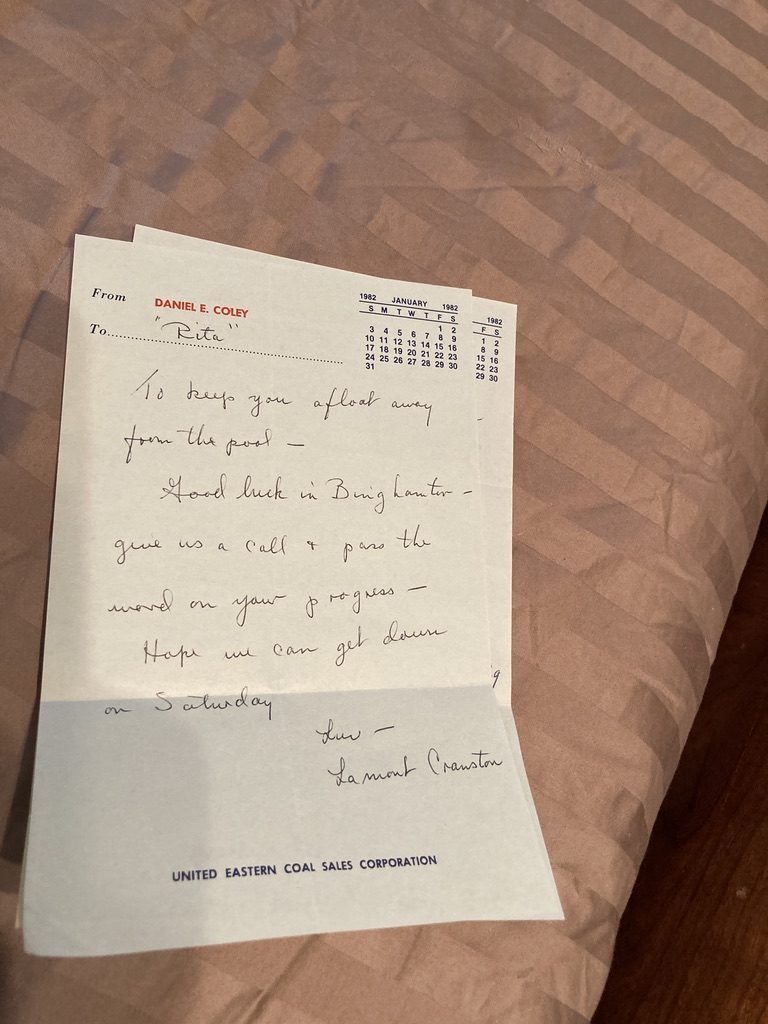 From DANIEL E. COLEY
To "Rita"
1982 JANUARY 1982
S M T W T F S
1 2
3 4 5 6 7 8 9
10 11 12 13 14 15 16
17 18 19 20 21 22 23
24 25 26 27 28 29 30
31
To keep you afloat away
from the pool —
Good luck in Binghamton -
give us a call & pass the
word on your progress —
Hope we can get down
on Saturday
Luv —
Lamont Cranston
UNITED EASTERN COAL SALES CORPORATION
1982
F S
1 2
8 9
15 16
22 23
29 30
g